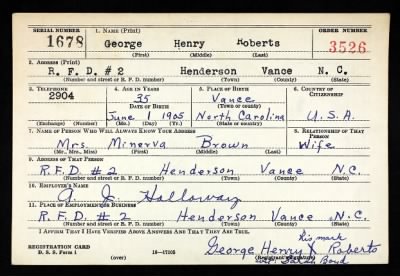 SERIAL NUMBER 1. NAME (Print) ORDER NUMBER
1678 George Henry Roberts 3526
(First) (Middle) (Last)
2. ADDRESS (Print)
R. F. D. # 2 Henderson Vance N. C.
(Number and street or R. F. D. number) (Town) (County) (State)
3. TELEPHONE 4. AGE IN YEARS 5. PLACE OF BIRTH 6. COUNTRY OF CITIZENSHIP
2904 35 Vance
DATE OF BIRTH (Town or county)
June 1 1905 North Carolina U.S.A.
(Exchange) (Number) (Mo.) (Day) (Yr.) (State or country)
7. NAME OF PERSON WHO WILL ALWAYS KNOW YOUR ADDRESS 8. RELATIONSHIP OF THAT PERSON
Mrs. Minerva Brown Wife
(Mr., Mrs., Miss) (First) (Middle) (Last)
9. ADDRESS OF THAT PERSON
R.F.D. # 2 Henderson Vance N.C.
(Number and street or R. F. D. number) (Town) (County) (State)
10. EMPLOYER'S NAME
Holloway
11. PLACE OF EMPLOYMENT OR BUSINESS
R.F.D. # 2 Henderson Vance N.C.
(Number and street or R. F. D. number) (Town) (County) (State)
I AFFIRM THAT I HAVE VERIFIED ABOVE ANSWERS AND THAT THEY ARE TRUE.
his mark
REGISTRATION CARD George Henry X Roberts
D. S. S. Form 1 16-17105